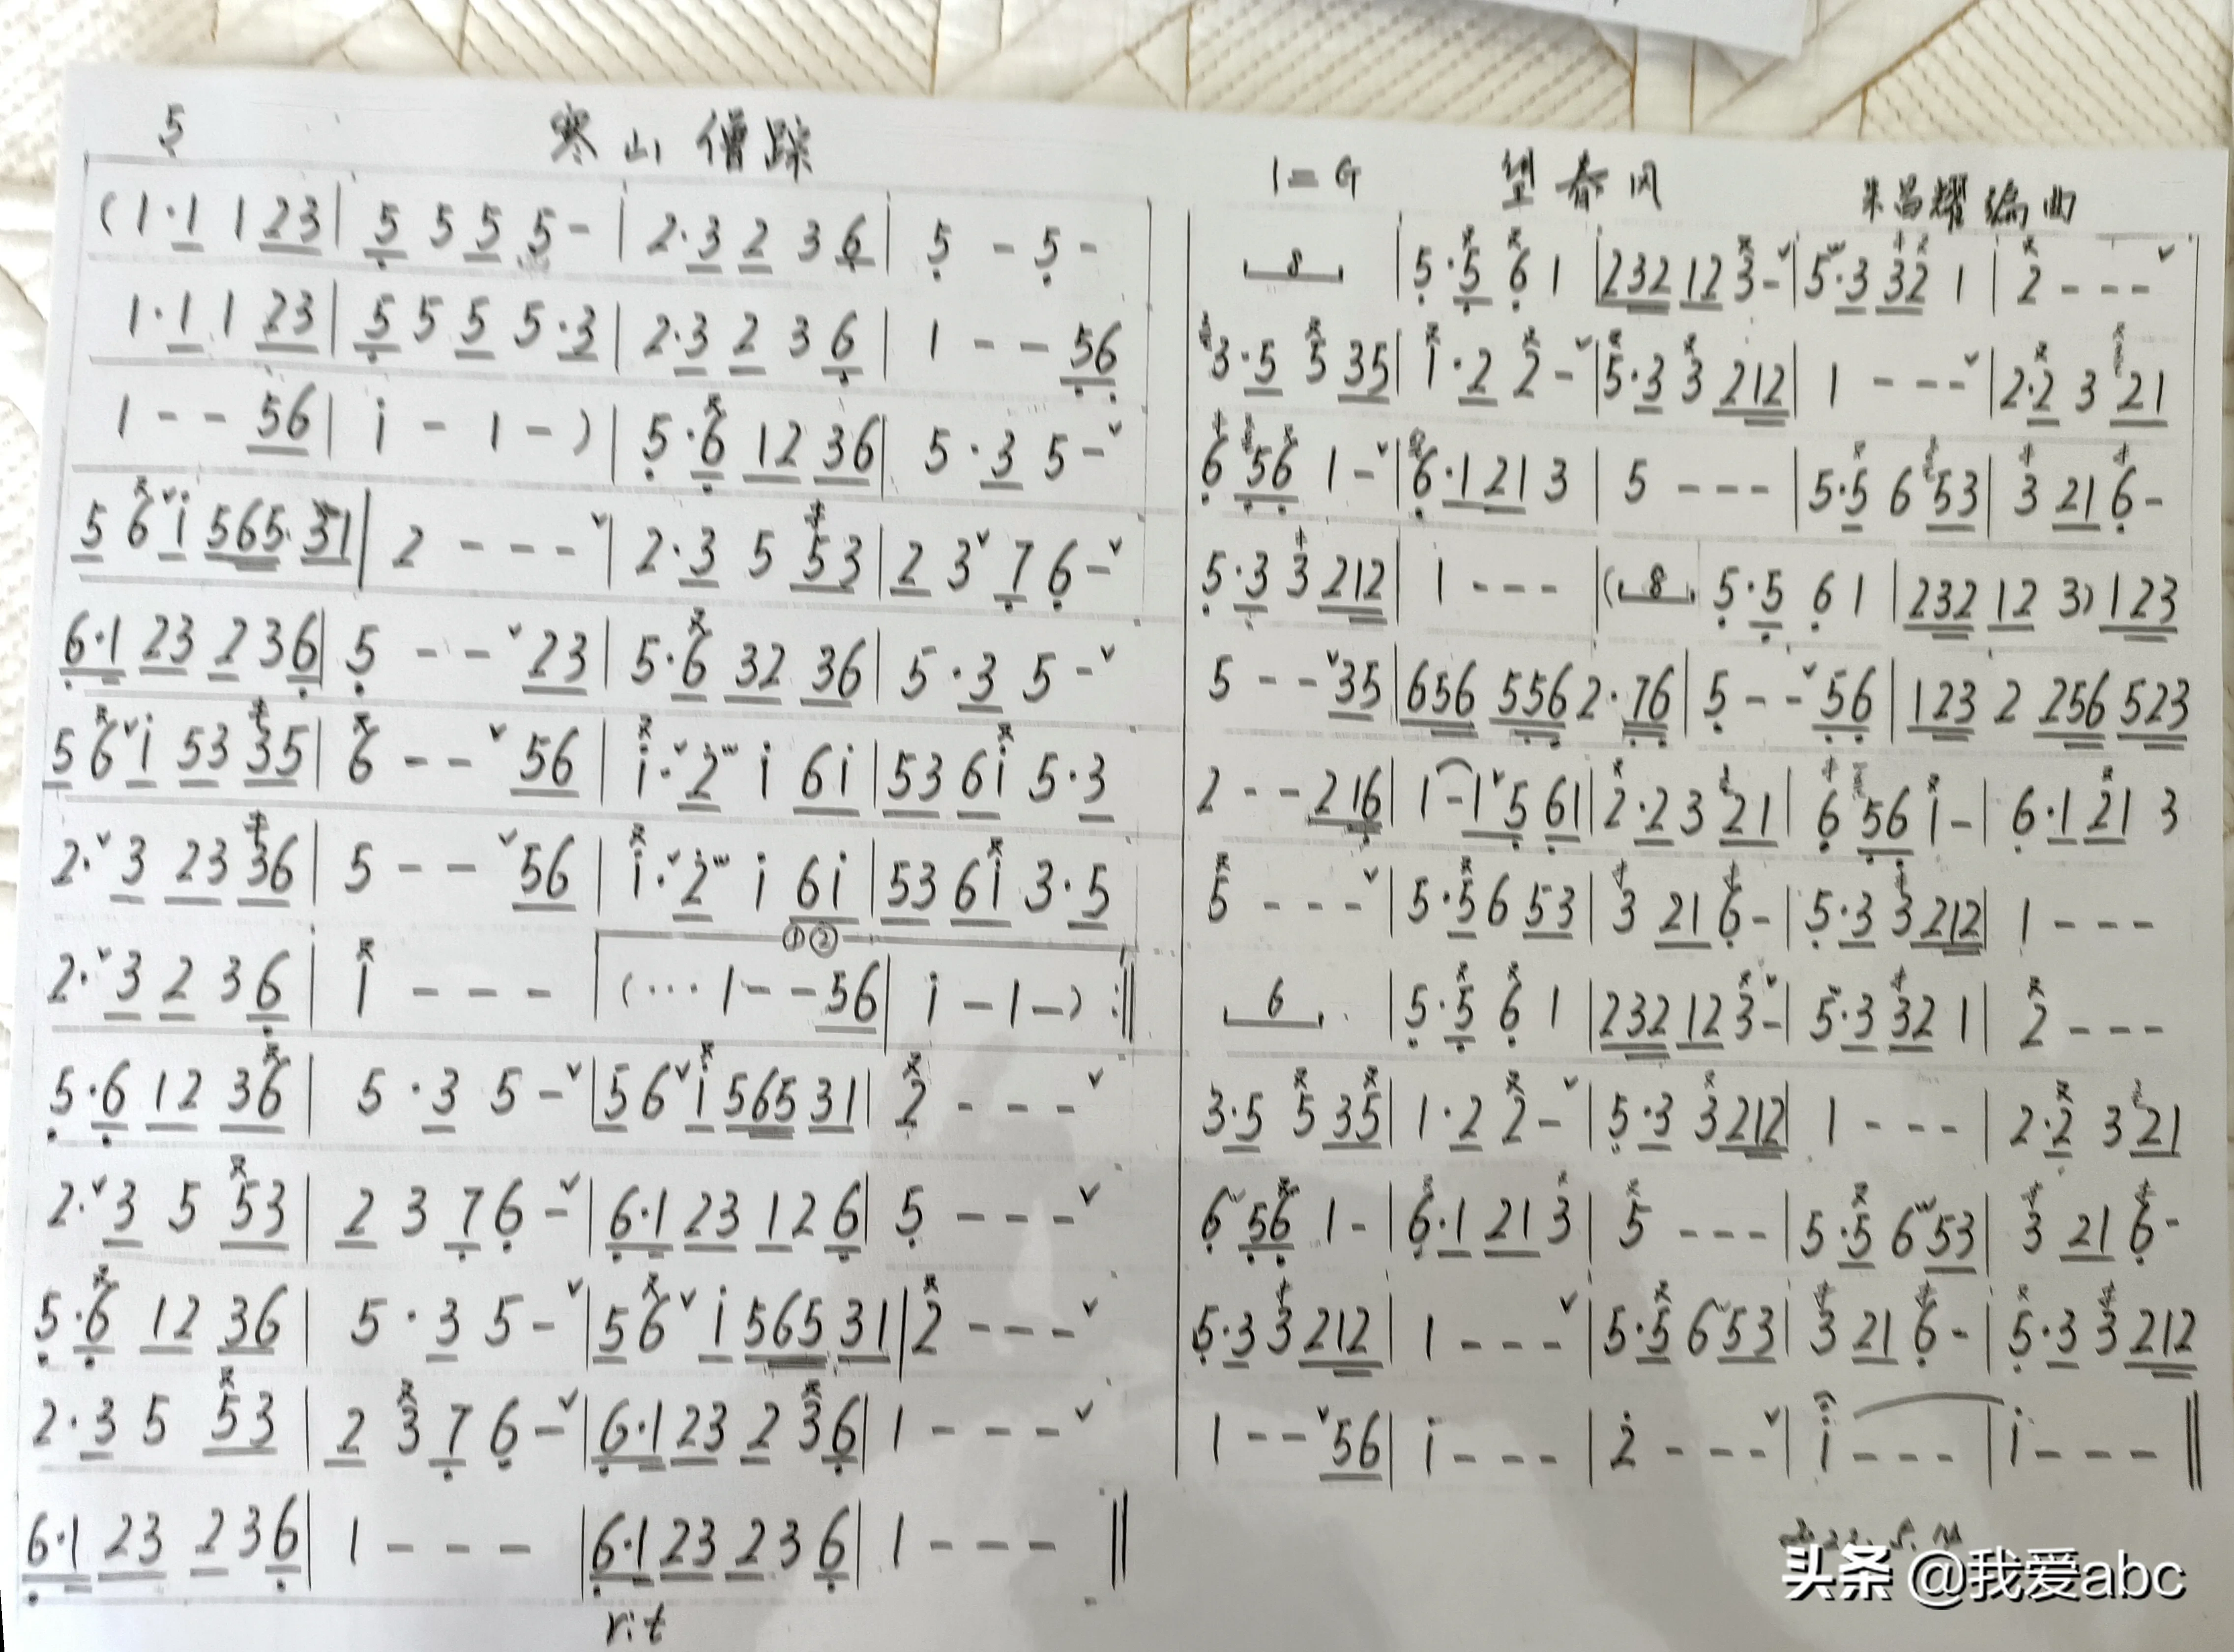 5 寒山僧踪
(1·1 1 23 | 5 5 5 5 - | 2·3 2 3 6 | 5 - 5 -
1·1 1 23 | 5 5 5 5·3 | 2·3 2 3 6 | 1 - - 56
1 - - 56 | i - 1 -) | 5·6 12 36 | 5·3 5 -ˇ
5 6ˇi 565· 31 | 2 - - -ˇ | 2·3 5 53 | 2 3ˇ7 6 -ˇ
6·1 23 2 3 6 | 5 - -ˇ23 | 5·6 32 36 | 5·3 5 -ˇ
5 6ˇi 53 35 | 6 - -ˇ56 | i·ˇ2 i 6i | 53 6i 5·3
2·ˇ3 23 36 | 5 - -ˇ56 | i·ˇ2 i 6i | 53 6i 3·5
①②
2·ˇ3 2 3 6 | i - - - | (··· 1 - - 56 | i - 1 -) :‖
5·6 12 36 | 5·3 5 -ˇ | 5 6ˇi 565 31 | 2 - - -ˇ
2·ˇ3 5 53 | 2 3 7 6 -ˇ | 6·1 23 1 2 6 | 5 - - -ˇ
5·6 12 36 | 5·3 5 -ˇ | 5 6ˇi 565 31 | 2 - - -ˇ
2·3 5 53 | 2 3 7 6 -ˇ | 6·1 23 2 3 6 | 1 - - -ˇ
6·1 23 2 3 6 | 1 - - - | 6·1 23 2 3 6 | 1 - - - ‖
rit
1=G 望春风 朱昌耀编曲
8 | 5·5 6 1 | 232 12 3 -ˇ | 5·3 32 1 | 2 - - -ˇ
3·5 5 35 | i·2 2 -ˇ | 5·3 3 212 | 1 - - -ˇ | 2·2 3 21
6 56 1 -ˇ | 6·1 21 3 | 5 - - - | 5·5 6 53 | 3 21 6 -
5·3 3 212 | 1 - - - | (8 5·5 6 1 | 232 12 3) 123
5 - -ˇ35 | 656 556 2·76 | 5 - -ˇ56 | 123 2 256 523
2 - - 216 | 1 - 1ˇ5 61 | 2·2 3 21 | 6 56 1 - | 6·1 21 3
5 - - -ˇ | 5·5 6 53 | 3 21 6 - | 5·3 3 212 | 1 - - -
6 | 5·5 6 1 | 232 12 3 -ˇ | 5·3 32 1 | 2 - - -
3·5 5 35 | 1·2 2 -ˇ | 5·3 3 212 | 1 - - - | 2·2 3 21
6 56 1 - | 6·1 21 3 | 5 - - - | 5·5 6 53 | 3 21 6 -
5·3 3 212 | 1 - - -ˇ | 5·5 6 53 | 3 21 6 - | 5·3 3 212
1 - -ˇ56 | i - - - | 2 - - -ˇ | i - - - | i - - - ‖
头条 @我爱abc